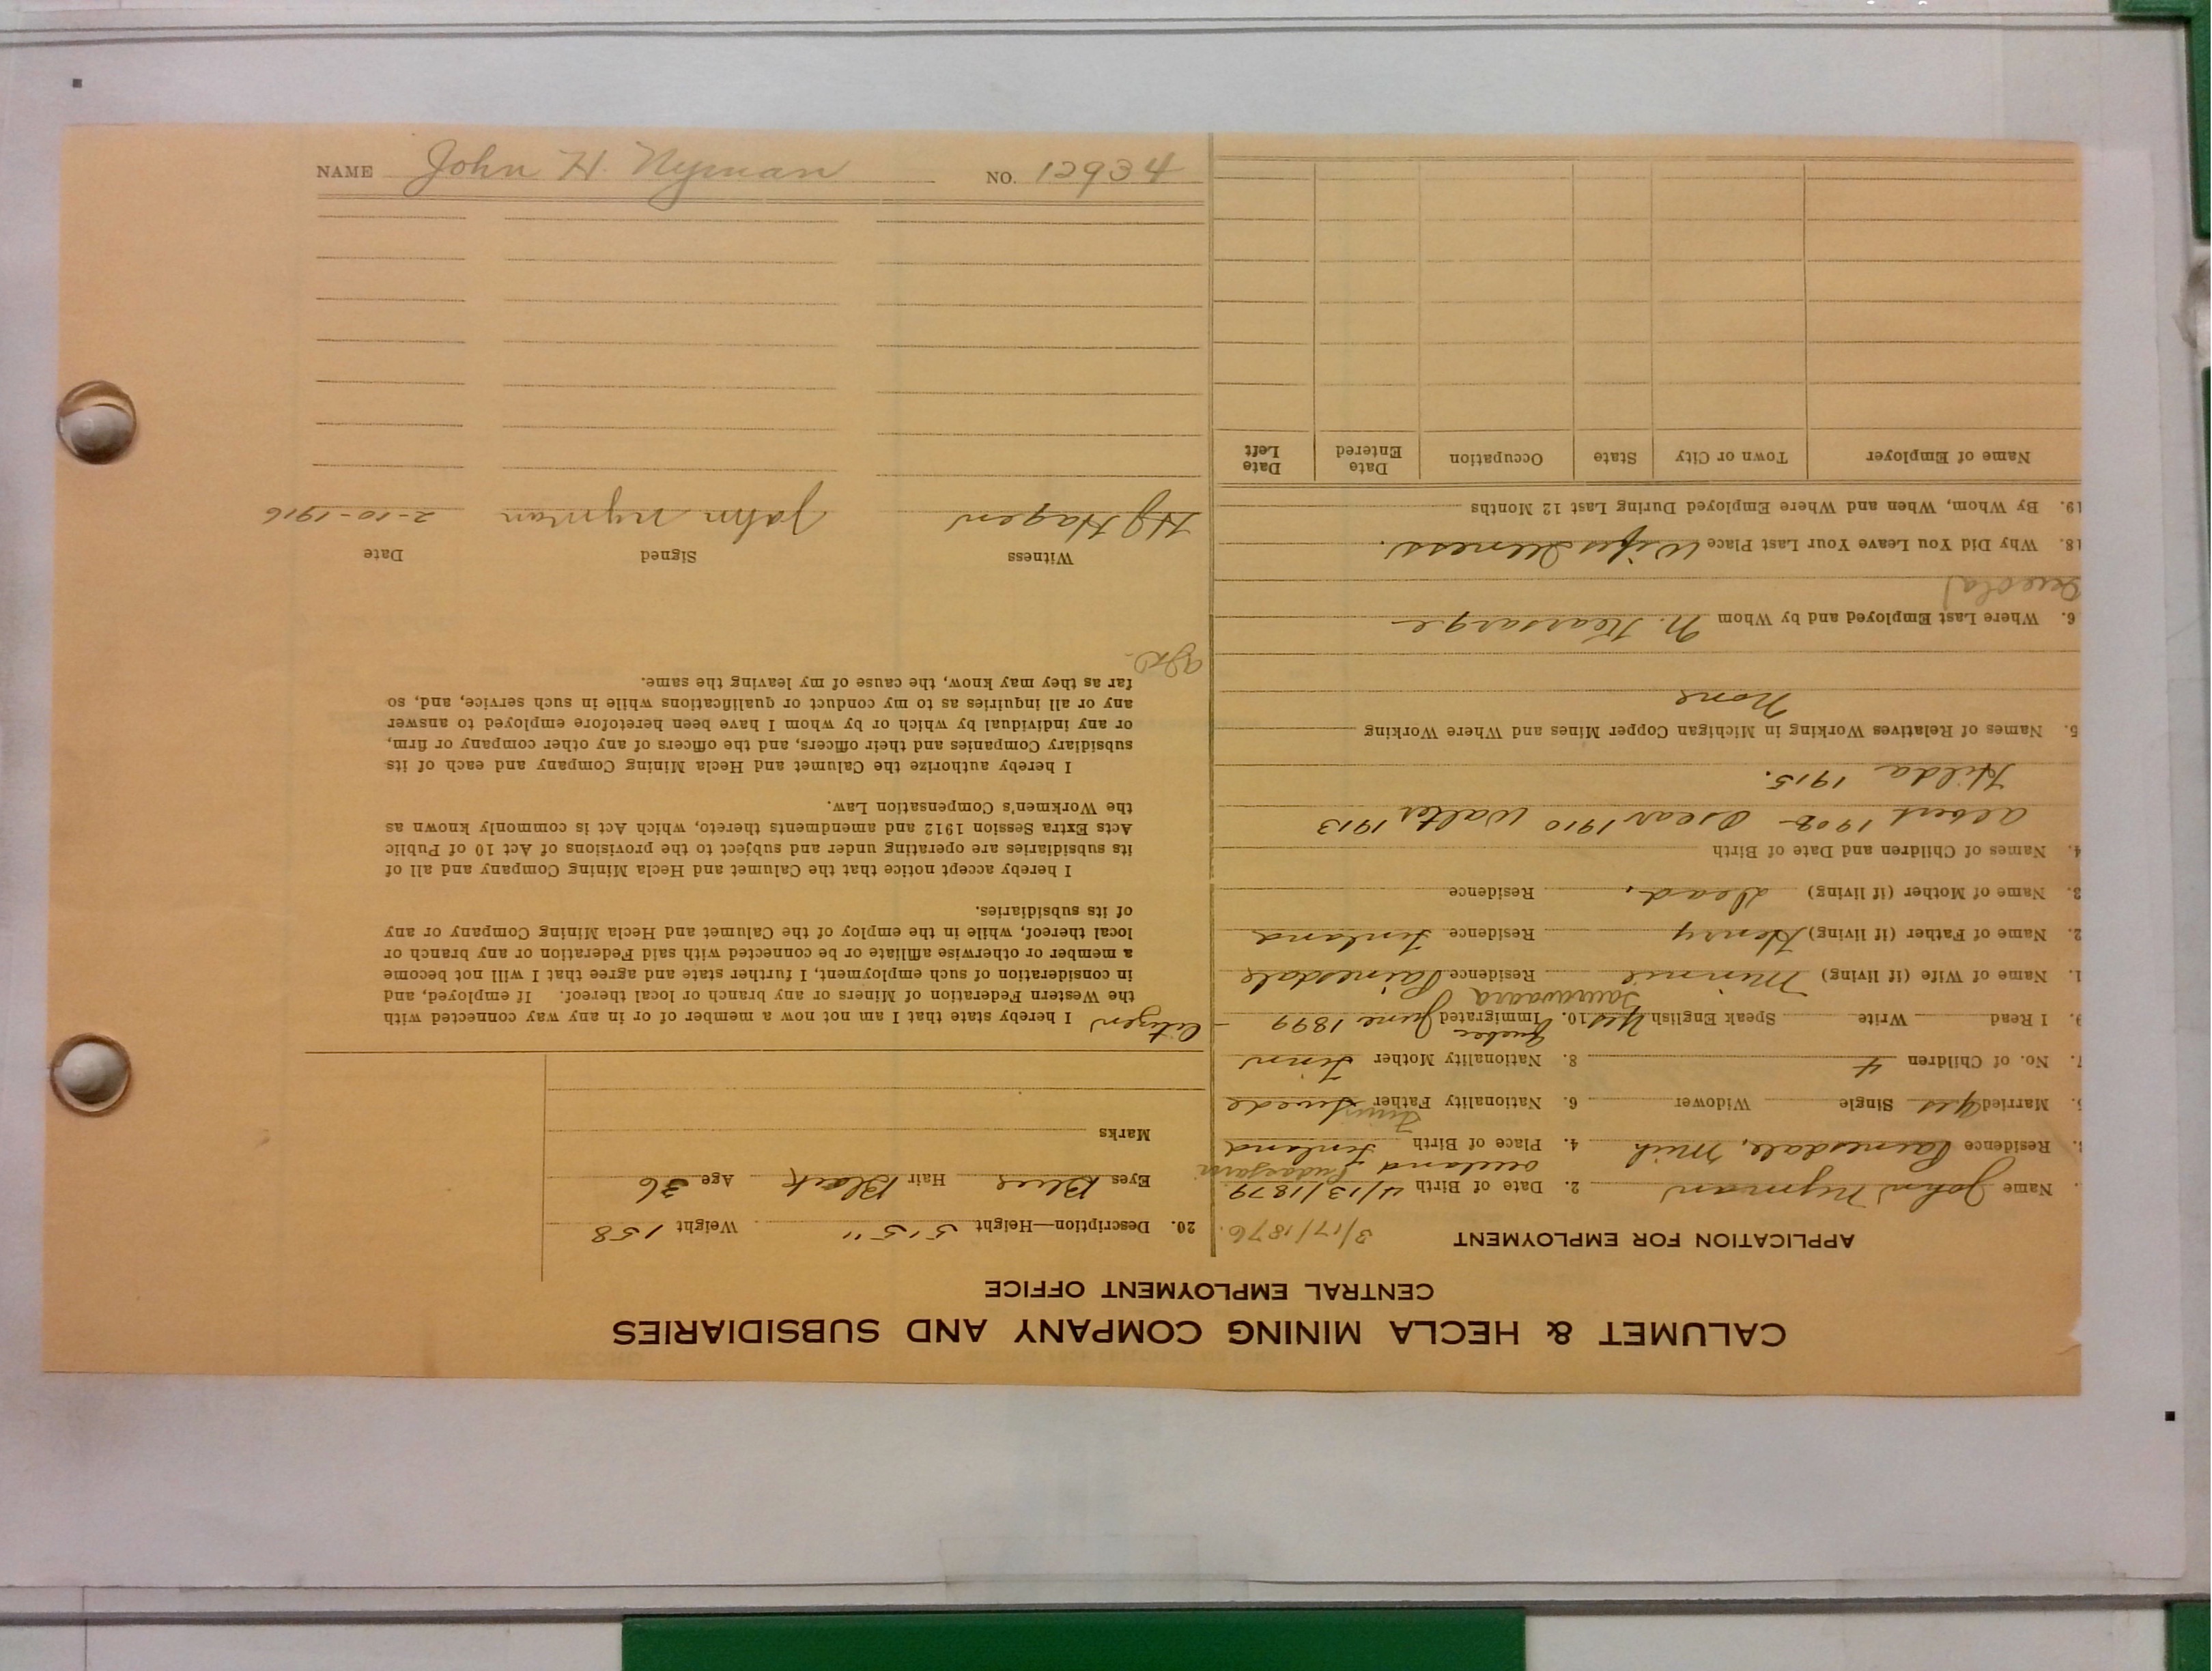 CALUMET & HECLA MINING COMPANY AND SUBSIDIARIES
CENTRAL EMPLOYMENT OFFICE
APPLICATION FOR EMPLOYMENT 3/17/1876.
Name John Nyman 2. Date of Birth 4/13/1879
Residence Painesdale, Mich 4. Place of Birth Finland
Married Yes Single Widower 6. Nationality Father Swede
7. No. of Children 4 8. Nationality Mother Finn
Quebec
9. I Read Write Speak English Yes 10. Immigrated June 1899
1. Name of Wife (if living) Minnie Residence Painesdale
2. Name of Father (if living) Henry Residence Finland
3. Name of Mother (if living) Dead. Residence
4. Names of Children and Date of Birth
Albert 1908 - Oscar 1910 Walter 1913
Hilda 1915.
5. Names of Relatives Working in Michigan Copper Mines and Where Working
None
6. Where Last Employed and by Whom N. Kearsarge
Osceola
18. Why Did You Leave Your Last Place Wifes Illness.
19. By Whom, When and Where Employed During Last 12 Months
Name of Employer Town or City State Occupation Date Entered Date Left
20. Description—Height 5'5" Weight 158
Eyes Blue Hair Black Age 36
Marks
Citizen
I hereby state that I am not now a member of or in any way connected with
the Western Federation of Miners or any branch or local thereof. If employed, and
in consideration of such employment, I further state and agree that I will not become
a member or otherwise affiliate or be connected with said Federation or any branch or
local thereof, while in the employ of the Calumet and Hecla Mining Company or any
of its subsidiaries.
I hereby accept notice that the Calumet and Hecla Mining Company and all of
its subsidiaries are operating under and subject to the provisions of Act 10 of Public
Acts Extra Session 1912 and amendments thereto, which Act is commonly known as
the Workmen's Compensation Law.
I hereby authorize the Calumet and Hecla Mining Company and each of its
subsidiary Companies and their officers, and the officers of any other company or firm,
or any individual by which or by whom I have been heretofore employed to answer
any or all inquiries as to my conduct or qualifications while in such service, and, so
far as they may know, the cause of my leaving the same.
Witness Signed Date
HJ Hagen John Nyman 2-10-1916
NAME John H. Nyman NO. 12934